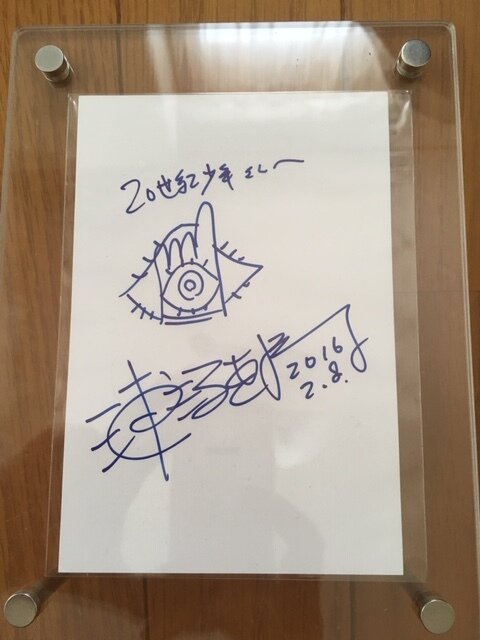 20世紀少年さんへ
浦沢直樹
2016
2.8.